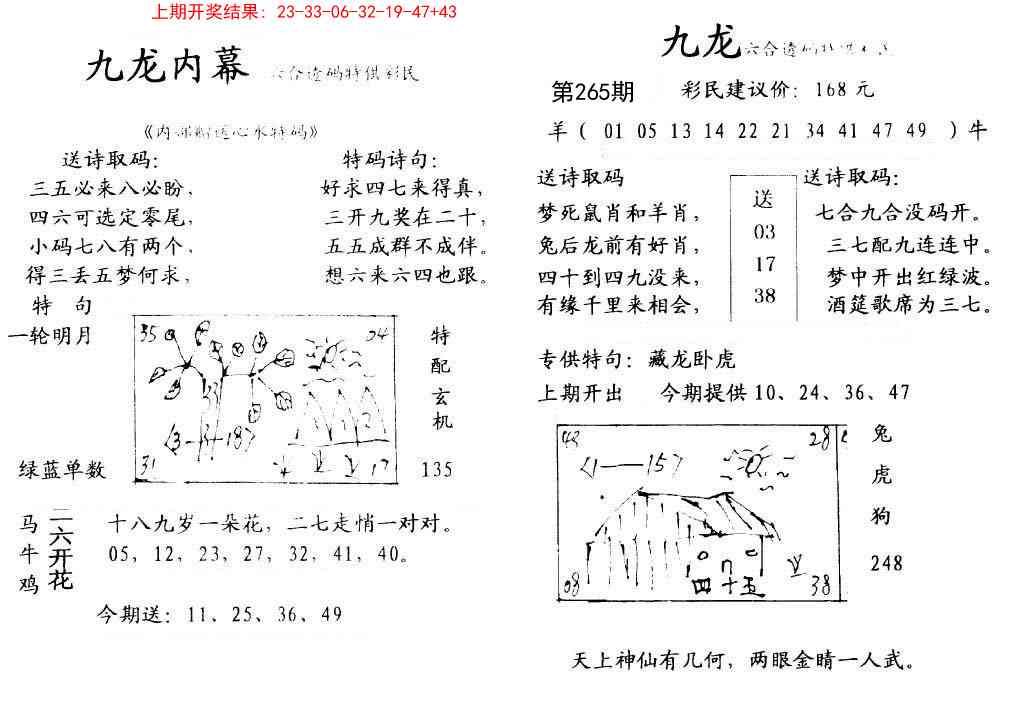 上期开奖结果：23-33-06-32-19-47+43
九龙内幕
六合透码特供彩民
送诗取码：
三五必来八必盼，
四六可选定零尾，
小码七八有两个，
得三丢五梦何求，
特码诗句：
好求四七来得真，
三开九奖在二十，
五五成群不成伴。
想六来六四也跟。
特 句
一轮明月
绿蓝单数
35
04
33
31
17
特
配
玄
机
135
马
牛
鸡
二六开花
十八九岁一朵花，二七走悄一对对。
05，12，23，27，32，41，40。
今期送：11、25、36、49
九龙
六合透码
第265期
彩民建议价：168元
羊（ 01 05 13 14 22 21 34 41 47 49 ）牛
送诗取码
梦死鼠肖和羊肖，
兔后龙前有好肖，
四十到四九没来，
有缘千里来相会，
送
03
17
38
送诗取码：
七合九合没码开。
三七配九连连中。
梦中开出红绿波。
酒筵歌席为三七。
专供特句：藏龙卧虎
上期开出 今期提供10、24、36、47
28
08
38
四十五
兔
虎
狗
248
天上神仙有几何，两眼金睛一人武。